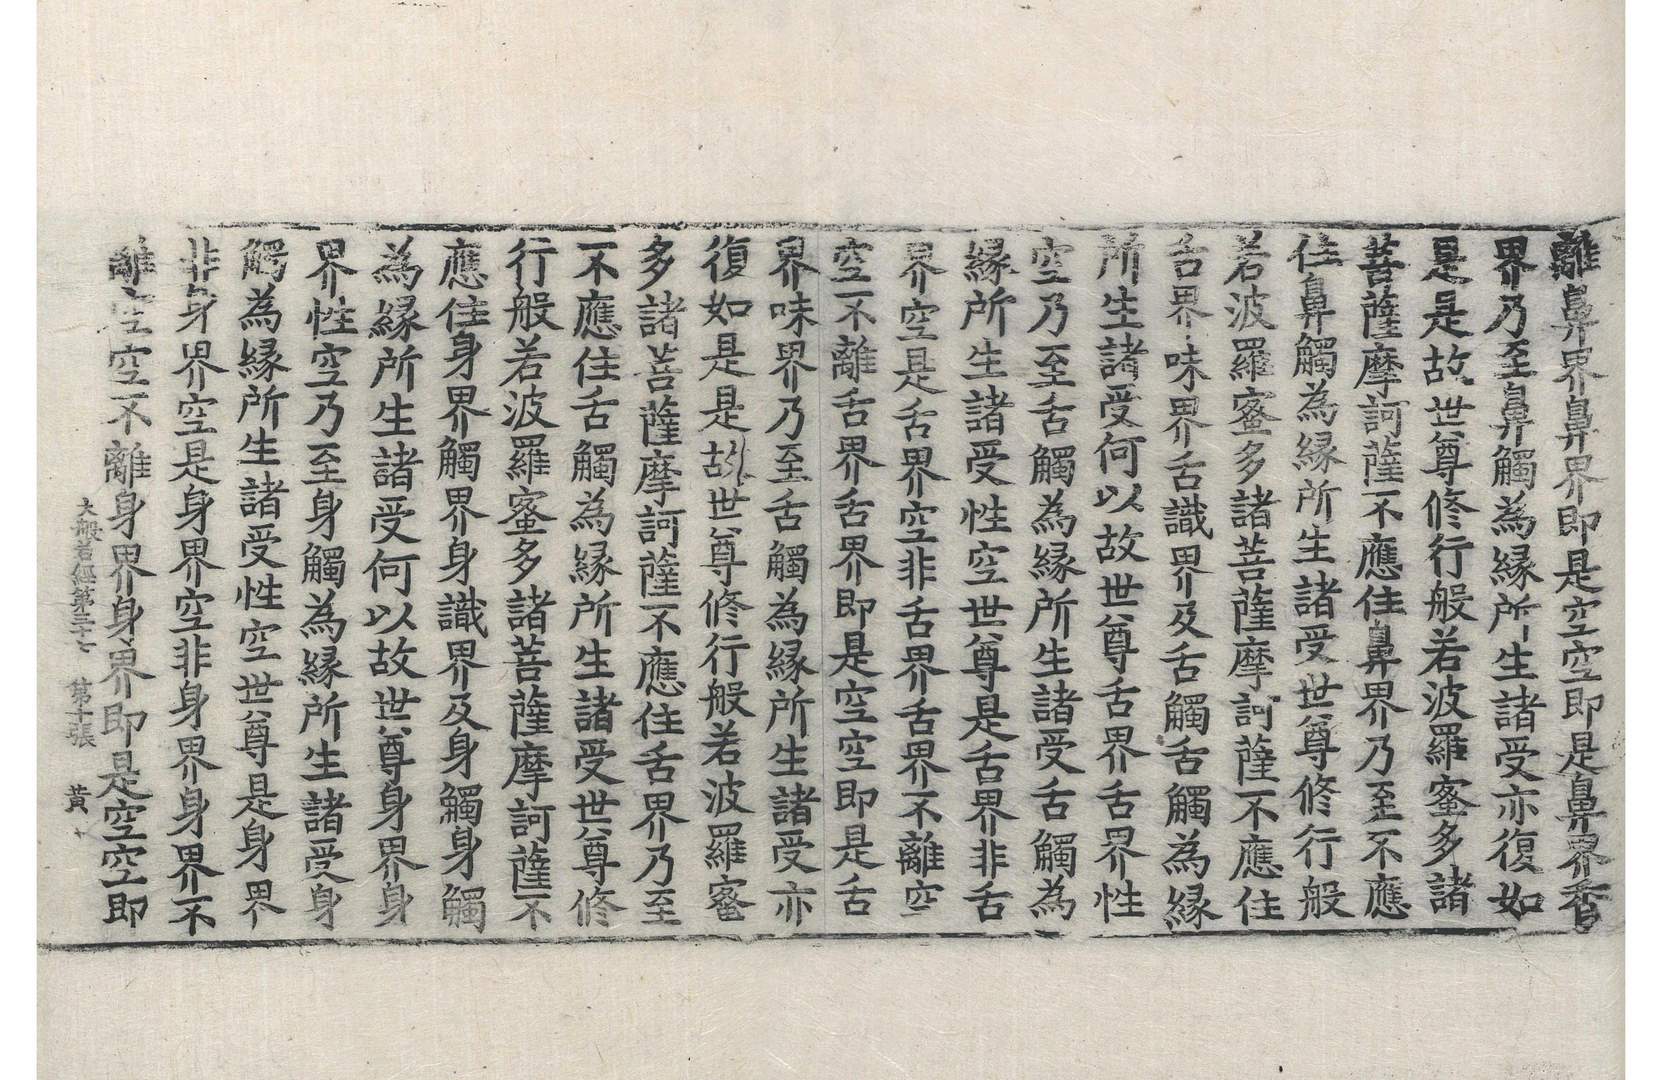 離鼻界鼻界即是空空即是鼻界香
界乃至鼻觸為縁所生諸受亦復如
是是故世尊修行般若波羅蜜多諸
菩薩摩訶薩不應住鼻界乃至不應
住鼻觸為縁所生諸受世尊修行般
若波羅蜜多諸菩薩摩訶薩不應住
舌界味界舌識界及舌觸舌觸為縁
所生諸受何以故世尊舌界舌界性
空乃至舌觸為縁所生諸受舌觸為
縁所生諸受性空世尊是舌界非舌
界空是舌界空非舌界舌界不離空
空不離舌界舌界即是空空即是舌
界味界乃至舌觸為縁所生諸受亦
復如是是故世尊修行般若波羅蜜
多諸菩薩摩訶薩不應住舌界乃至
不應住舌觸為縁所生諸受世尊修
行般若波羅蜜多諸菩薩摩訶薩不
應住身界觸界身識界及身觸身觸
為縁所生諸受何以故世尊身界身
界性空乃至身觸為縁所生諸受身
觸為縁所生諸受性空世尊是身界
非身界空是身界空非身界身界不
離空空不離身界身界即是空空即
大般若經第三十七 第十張 黃